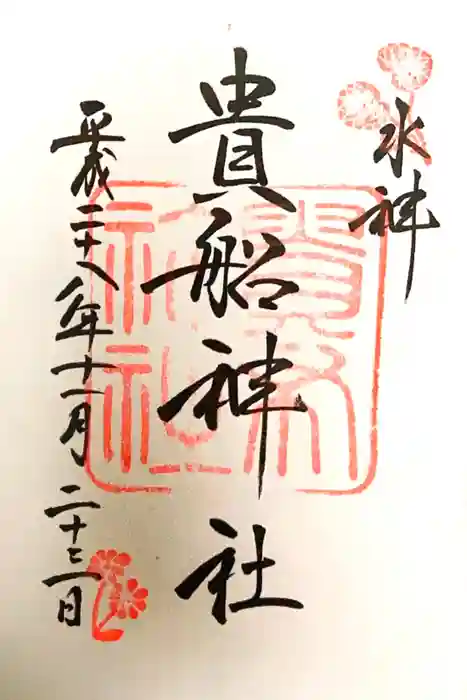 水神
貴船神社
平成二十八年十一月二十三日